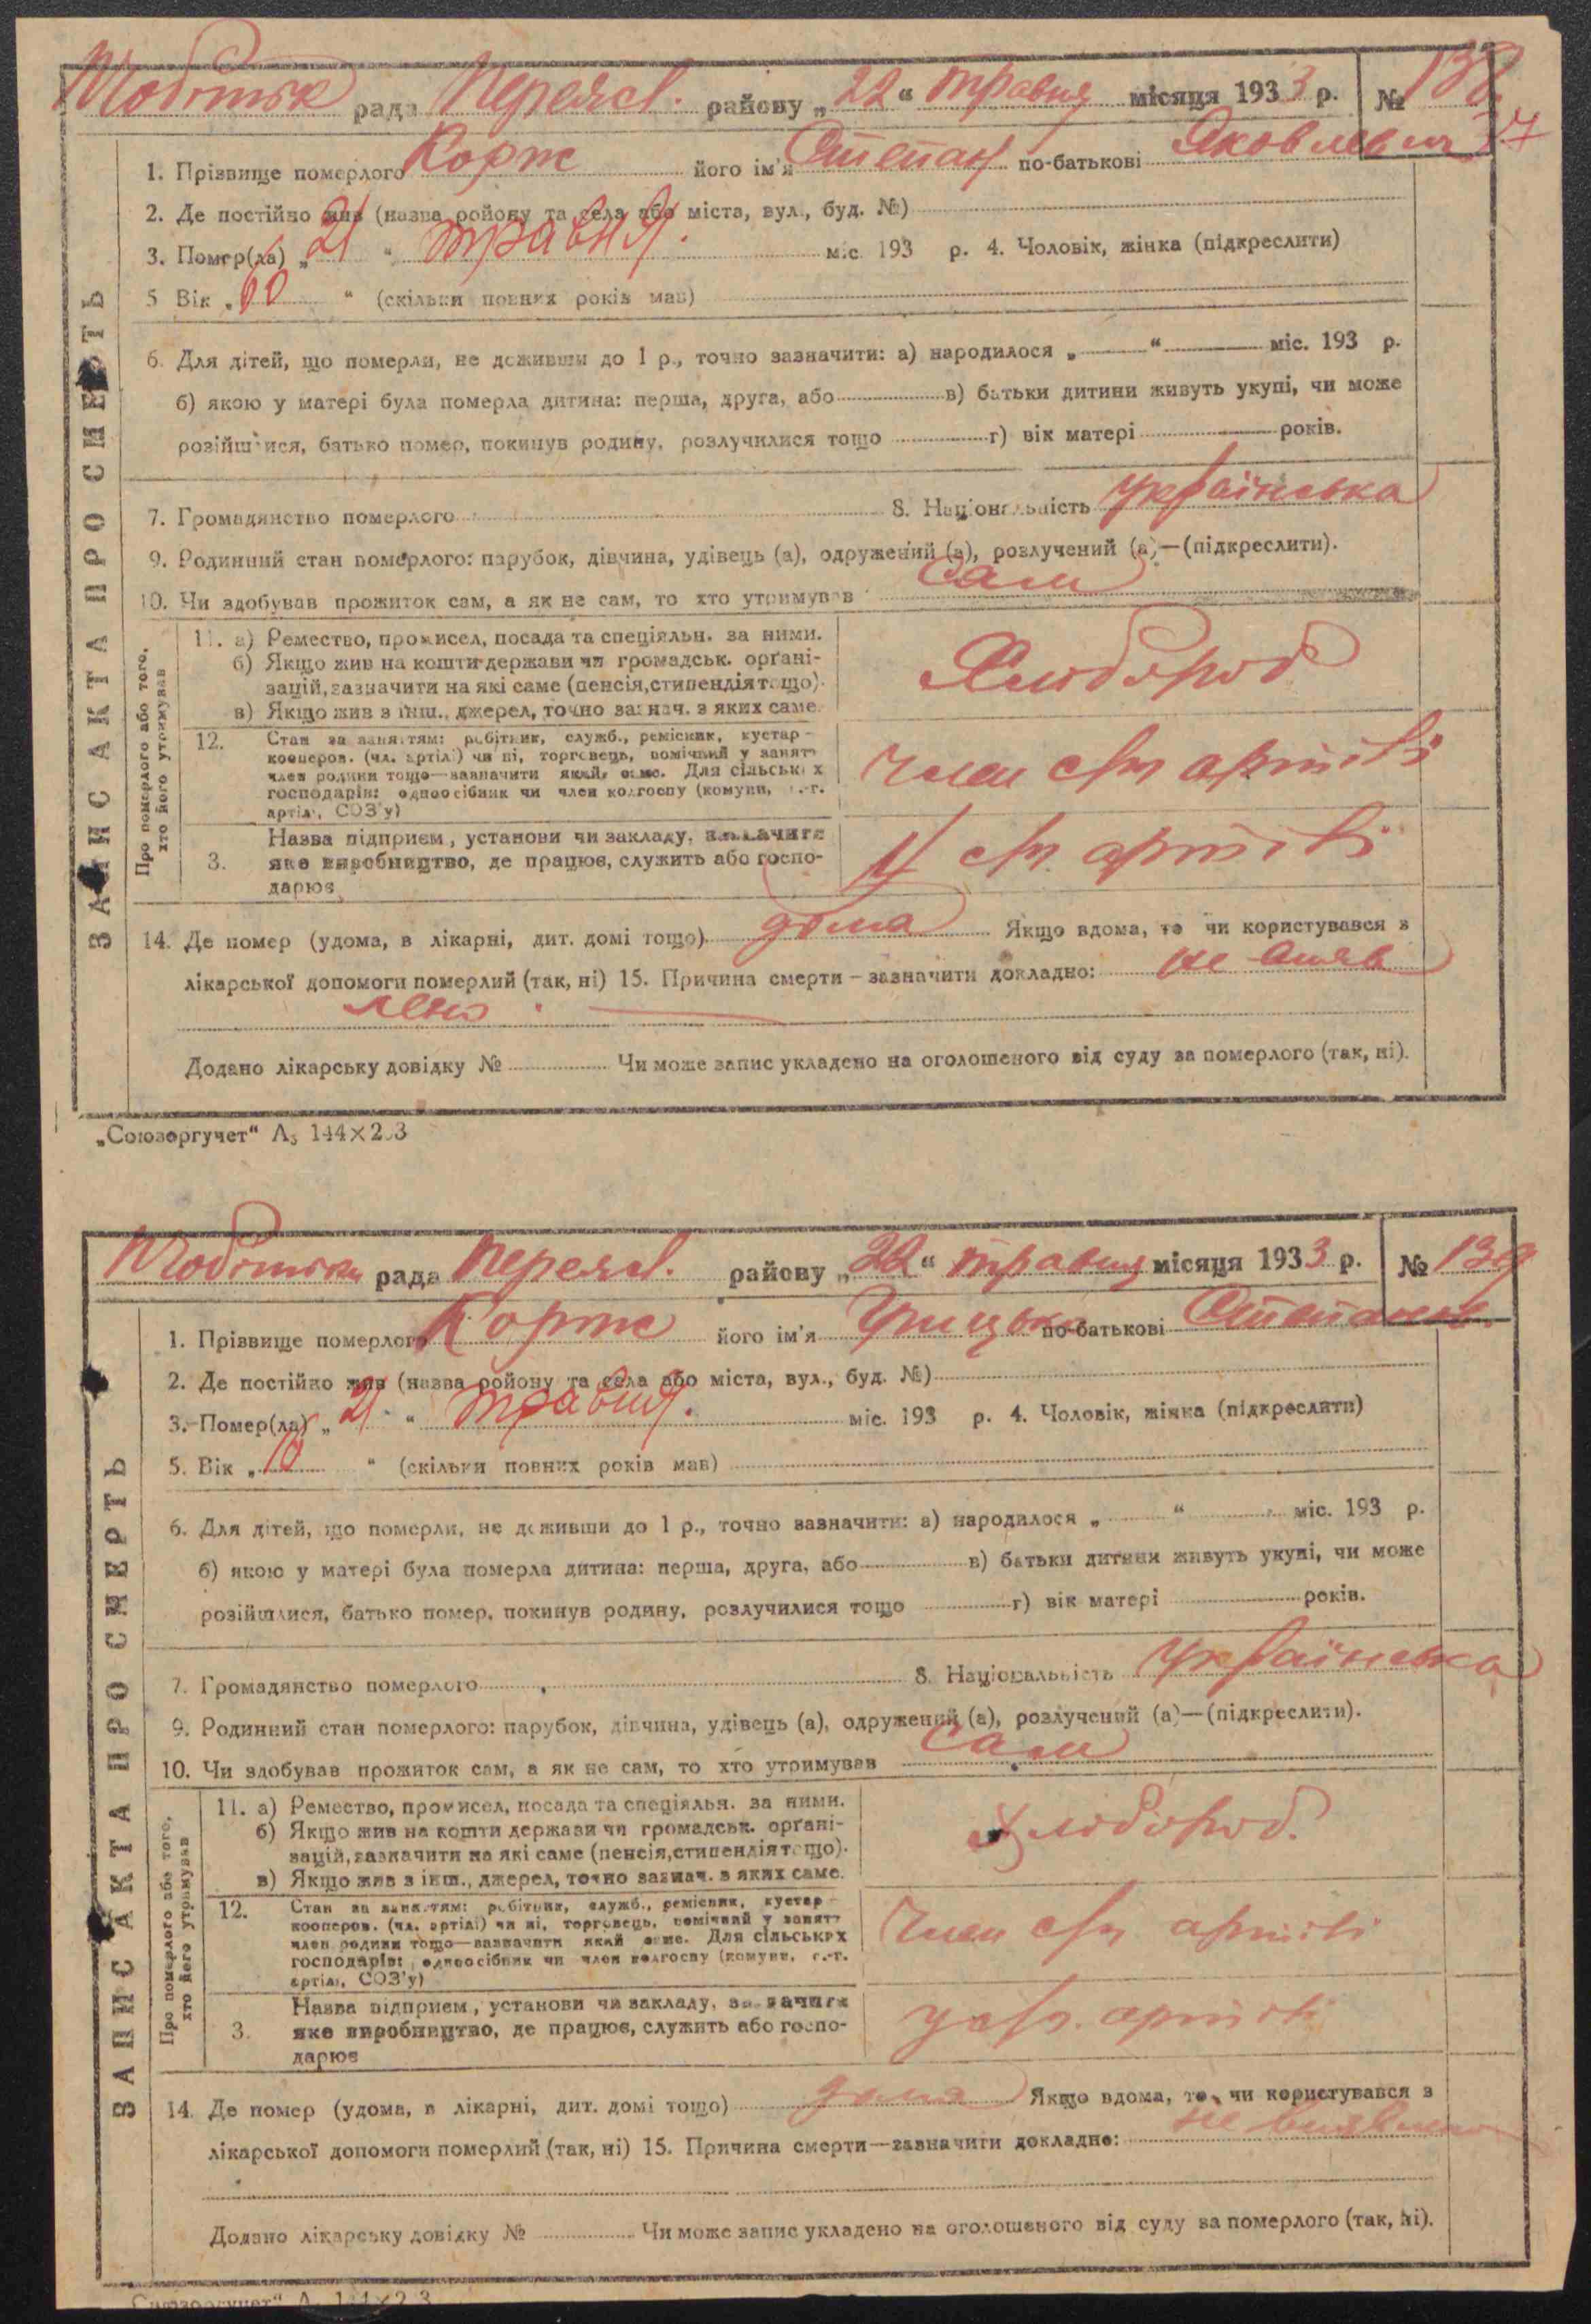 рада Переясл. району „22“ травня місяця 1933 р. № 138
37
1. Прізвище померлого Корж його ім'я Степан по-батькові Яковлевич
2. Де постійно жив (назва ройону та села або міста, вул., буд. №)
3. Помер(ла) „21“ травня. міс. 193 р. 4. Чоловік, жінка (підкреслити)
5 Вік „60“ (скільки повних років мав)
6. Для дітей, що померли, не доживши до 1 р., точно зазначити: а) народилося „ “ міс. 193 р.
б) якою у матері була померла дитина: перша, друга, або в) батьки дитини живуть укупі, чи може
розійшлися, батько помер, покинув родину, розлучилися тощо г) вік матері років.
7. Громадянство померлого 8. Національність українська
9. Родинний стан померлого: парубок, дівчина, удівець (а), одружений (а), розлучений (а)—(підкреслити).
10. Чи здобував прожиток сам, а як не сам, то хто утримував сам
ЗАПИС АКТА ПРО СМЕРТЬ
Про померлого або того,
хто його утримував
11. а) Ремество, промисел, посада та спеціяльн. за ними.
б) Якщо жив на кошти держави чи громадськ. орґані-
зацій, зазначити на які саме (пенсія, стипендія тощо).
в) Якщо жив з інш., джерел, точно зазнач. з яких саме.
Хлібороб
12. Стан за заняттям: робітник, служб., ремісник, кустар-
коопеpов. (чл. артілі) чи ні, торговець, помічний у занятт
член родини тощо—зазначити який саме. Для сільських
господарів: одноосібник чи член колгоспу (комуни, с.-г.
артілі, СОЗ'у)
член с/г артілі
3. Назва підприєм, установи чи закладу, зазначити
яке виробництво, де працює, служить або госпо-
дарює
У с/г. артілі
14. Де помер (удома, в лікарні, дит. домі тощо) дома Якщо вдома, то чи користувався з
лікарської допомоги померлий (так, ні) 15. Причина смерти – зазначити докладно: не вияв
лено.
Додано лікарську довідку № Чи може запис укладено на оголошеного від суду за померлого (так, ні).
„Союзоргучет“ А₅ 144×203
рада Переясл. району „22“ травня місяця 1933 р. № 139
1. Прізвище померлого Корж його ім'я Грицько по-батькові
2. Де постійно жив (назва ройону та села або міста, вул., буд. №)
3. Помер(ла) „21“ травня. міс. 193 р. 4. Чоловік, жінка (підкреслити)
5. Вік „10“ (скільки повних років мав)
6. Для дітей, що померли, не доживши до 1 р., точно зазначити: а) народилося „ “ міс. 193 р.
б) якою у матері була померла дитина: перша, друга, або в) батьки дитини живуть укупі, чи може
розійшлися, батько помер, покинув родину, розлучилися тощо г) вік матері років.
7. Громадянство померлого 8. Національність українська
9. Родинний стан померлого: парубок, дівчина, удівець (а), одружений (а), розлучений (а)—(підкреслити).
10. Чи здобував прожиток сам, а як не сам, то хто утримував сам
ЗАПИС АКТА ПРО СМЕРТЬ
Про померлого або того,
хто його утримував
11. а) Ремество, промисел, посада та спеціяльн. за ними.
б) Якщо жив на кошти держави чи громадськ. орґані-
зацій, зазначити на які саме (пенсія, стипендія тощо).
в) Якщо жив з інш., джерел, точно зазнач. з яких саме.
Хлібороб.
12. Стан за заняттям: робітник, служб., ремісник, кустар-
кооперов. (чл. артілі) чи ні, торговець, помічний у занятт
член родини тощо—зазначити який саме. Для сільських
господарів: одноосібник чи член колгоспу (комуни, с.-г.
артілі, СОЗ'у)
член с/г артілі
3. Назва підприєм, установи чи закладу, зазначити
яке виробництво, де працює, служить або госпо-
дарює
у с/г. артілі
14. Де помер (удома, в лікарні, дит. домі тощо) дома Якщо вдома, то чи користувався з
лікарської допомоги померлий (так, ні) 15. Причина смерти—зазначити докладно: не виявлено
Додано лікарську довідку № Чи може запис укладено на оголошеного від суду за померлого (так, ні).
„Союзоргучет“ А₅ 144×203